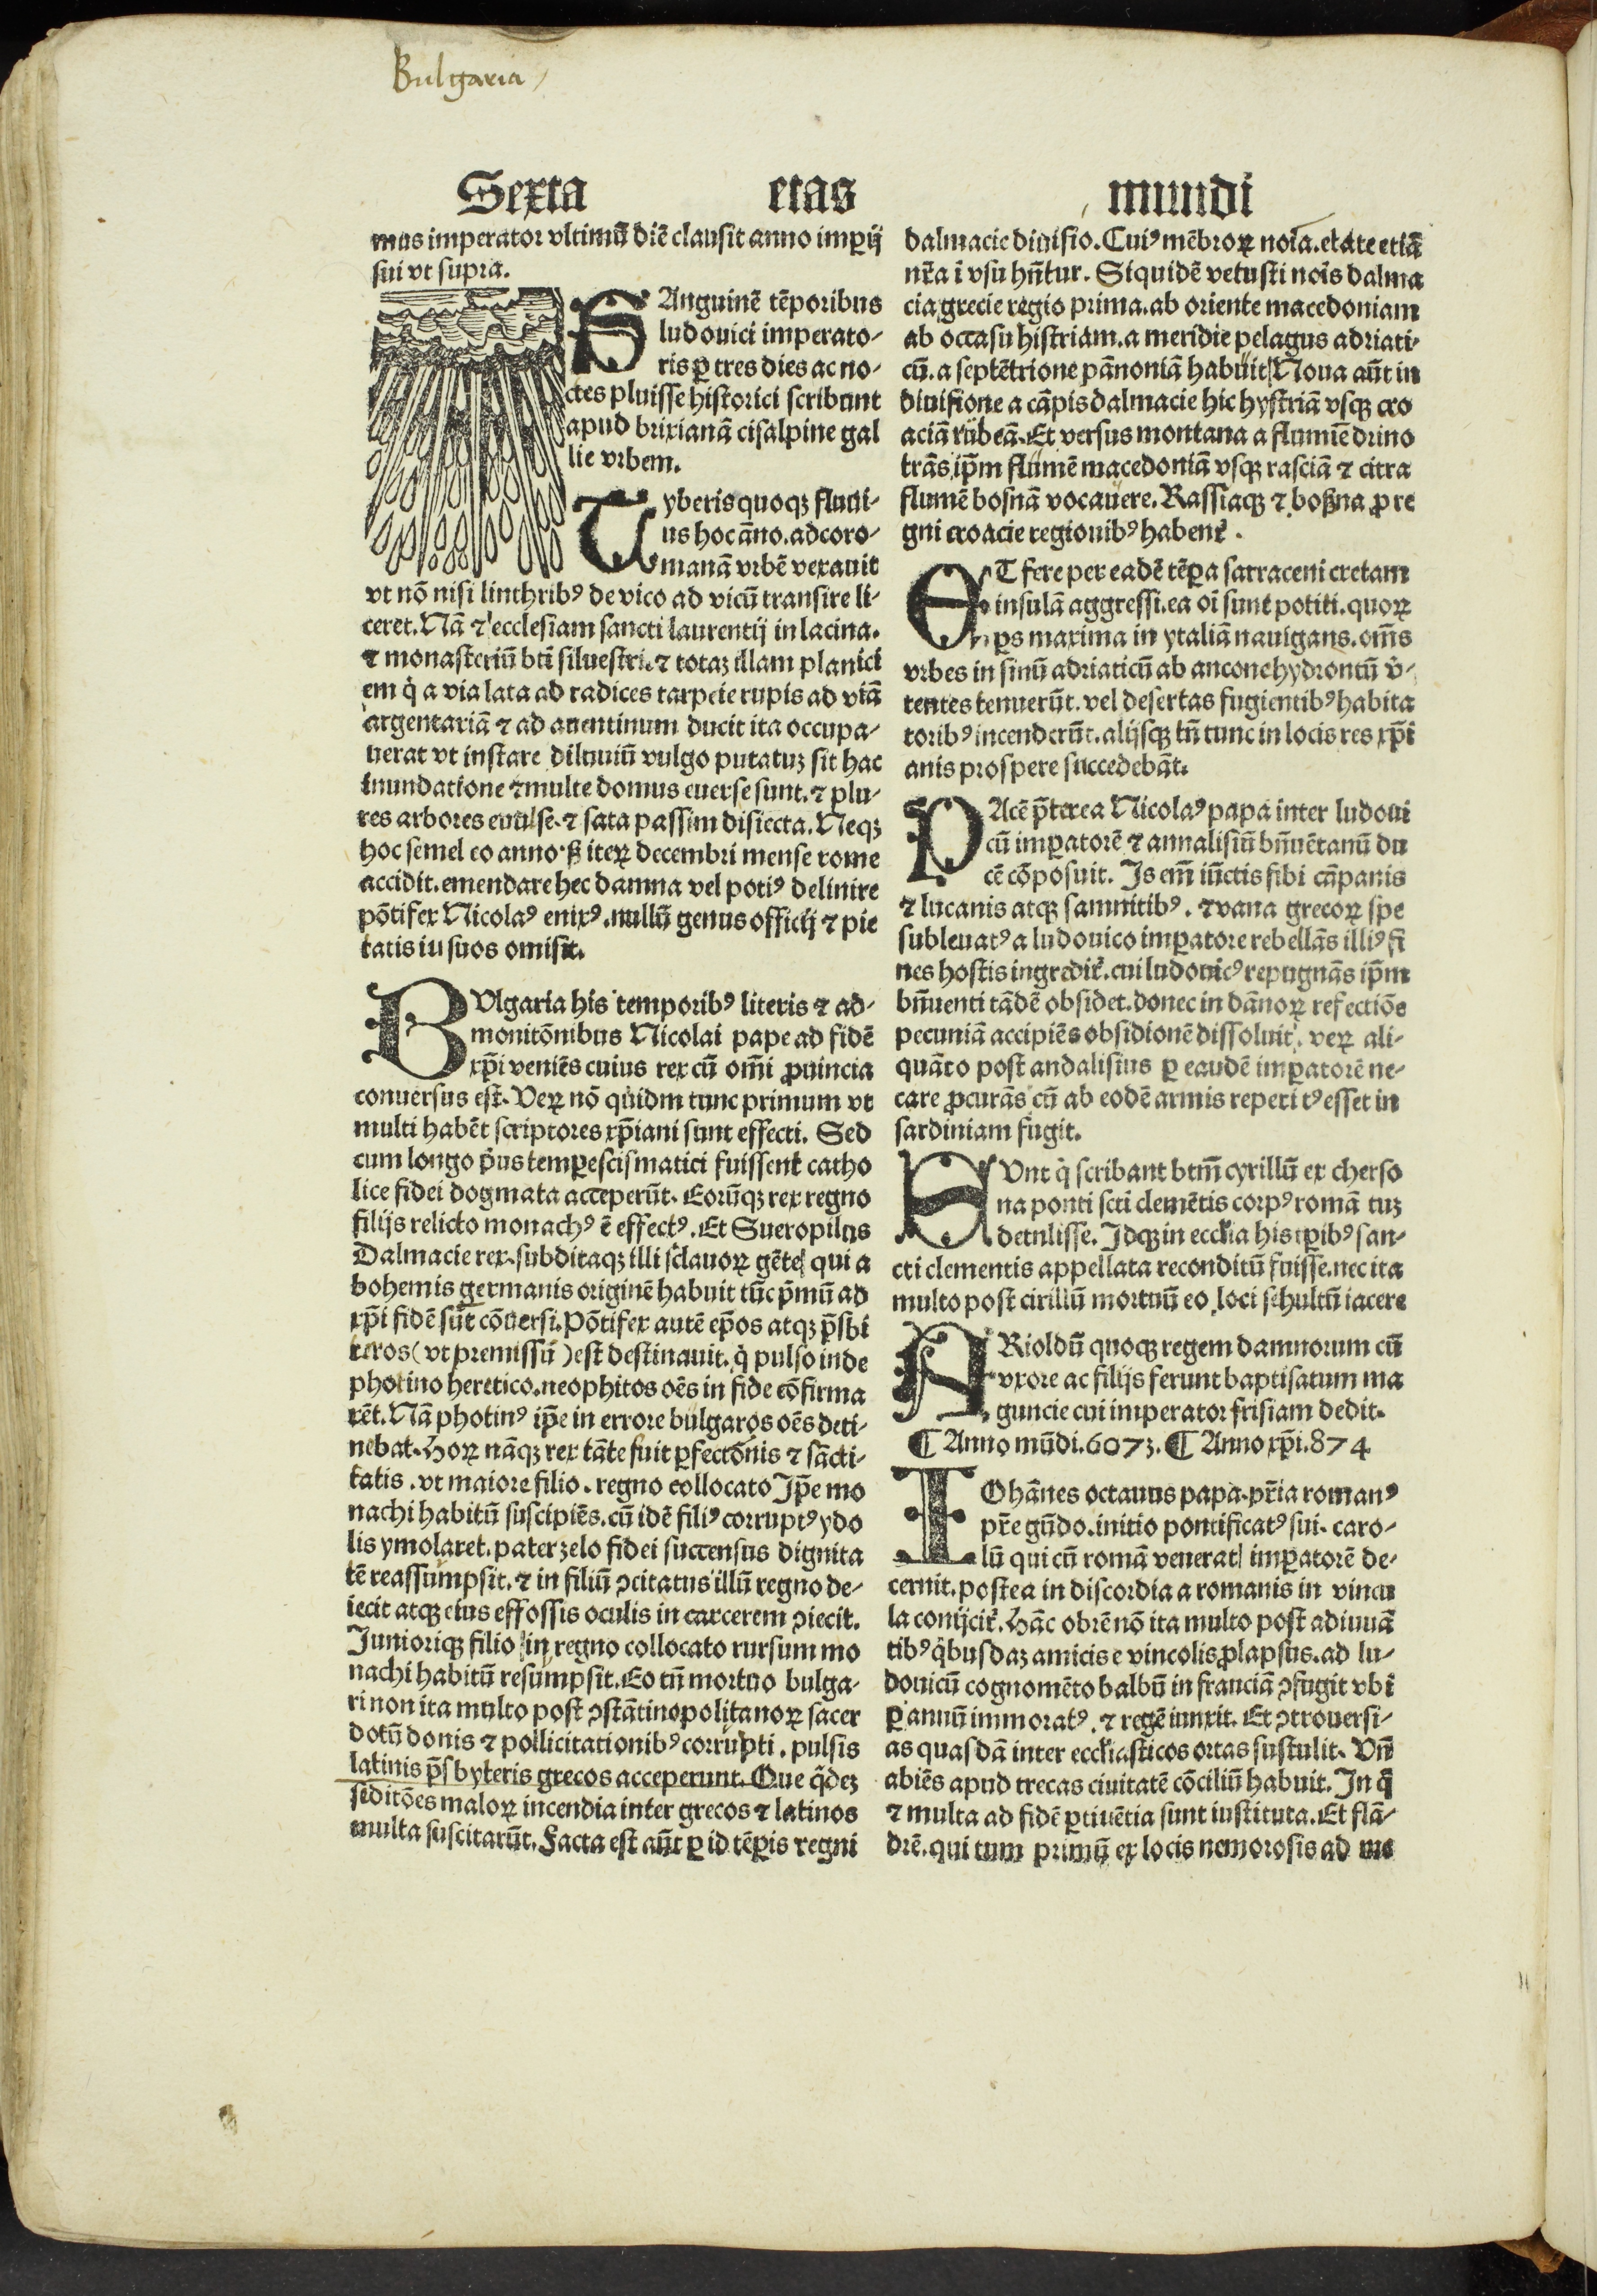 Bulgaria
Sexta etas mundi
mus imperator vltimū diē clausit anno imꝑij
sui vt supra.
SAnguinē tēporibus
ludouici imperato-
ris ꝑ tres dies ac no-
ctes pluisse historici scribunt
apud brixianā cisalpine gal
lie vrbem.
Tyberis quoqꝫ fluui-
us hoc āno. adeo ro-
manā vrbē vexauit
vt nō nisi linthribꝰ de vico ad vicū transire li-
ceret. Nā ⁊ ecclesiam sancti laurentij in lacina.
⁊ monasteriū bti siluestri. ⁊ totaꝫ illam planici
em q̇ a via lata ad radices tarpeie rupis ad viā
argentariā ⁊ ad auentinum ducit ita occupa-
uerat vt instare diluuiū vulgo putatuꝫ sit hac
inundatione ⁊ multe domus euerse sunt. ⁊ plu-
res arbores euulse. ⁊ sata passim disiecta. Neqꝫ
hoc semel eo anno ß iteꝝ decembri mense rome
accidit. emendare hec damna vel potiꝰ delinire
pōtifex Nicolaꝰ enixꝰ. nullū genus officij ⁊ pie
tatis iu suos omisit.
BVlgaria his temporibꝰ literis ⁊ ad-
monitōnibus Nicolai pape ad fidē
xp̄i veniēs cuius rex cū om̄i ꝓuincia
conuersus est. Veꝝ nō quidm tunc primum vt
multi habēt scriptores xp̄iani sunt effecti. Sed
cum longo p̓us tempe scismatici fuissent catho
lice fidei dogmata acceperūt. Eorūqꝫ rex regno
filijs relicto monachꝰ ē effectꝰ. Et Sueropilus
Dalmacie rex. subditaqꝫ illi sclauoꝝ gēte qui a
bohemis germanis originē habuit tūc p̄mū ad
xp̄i fidē sūt cōuersi. Pōtifex autē ep̄os atqꝫ p̄sbi
teros (vt premissū) est destinauit. q̇ pulso inde
photino heretico. neophitos oēs in fide cōfirma
rēt. Nā photinꝰ ip̄e in errore bulgaros oēs deti-
nebat. Hoꝝ nāqꝫ rex tāte fuit ꝑfectōnis ⁊ sācti-
tatis. vt maiore filio. regno collocato Ip̄e mo
nachi habitū suscipiēs. cū idē filiꝰ corruptꝰ ydo
lis ymolaret. pater zelo fidei succensus dignita
tē reassumpsit. ⁊ in filiū ꝯcitatus illū regno de-
iecit atqꝫ eius effossis oculis in carcerem ꝯiecit.
Iunioriqꝫ filio in regno collocato rursum mo
nachi habitū resumpsit. Eo tn̄ mortuo bulga-
ri non ita multo post ꝯstātinopolitanoꝝ sacer
dotū donis ⁊ pollicitationibꝰ corrupti. pulsis
latinis p̄sbyteris grecos acceperunt. Que q̄deꝫ
seditōes maloꝝ incendia inter grecos ⁊ latinos
multa suscitarūt. Facta est aūt ꝑ id tēꝑis regni
dalmacie diuisio. Cuiꝰ mēbroꝝ noīa. etate etiā
nr̄a ī vsu hn̄tur. Siquidē vetusti noīs dalma
cia grecie regio prima. ab oriente macedoniam
ab occasu histriam. a meridie pelagus adriati-
cū. a septētrione pānoniā habuit Noua aūt in
diuisione a cāpis dalmacie hic hystriā vsqꝫ cro
aciā rubeā. Et versus montana a flumīe drino
trās ip̄m flumē macedoniā vsqꝫ rasciā ⁊ citra
flumē bosnā vocauere. Rassiaqꝫ ⁊ boßna ꝓ re
gni croacie regionibꝰ habent.
ET fere per eadē tēꝑa sarraceni cretam
insulā aggressi. ea oī sunt potiti. quoꝝ
ꝑs maxima in ytaliā nauigans. om̄s
vrbes in sinū adriaticū ab ancone hydrontū v̓-
tentes tenuerūt. vel desertas fugientibꝰ habita
toribꝰ incenderūt. alijsqꝫ tn̄ tunc in locis res xp̄i
anis prospere succedebāt.
PAcē p̄terea Nicolaꝰ papa inter ludoui
cū imꝑatorē ⁊ annalisiū bn̄uētanū du
cē cōposuit. Is em̄ iūctis sibi cāpanis
⁊ lucanis atqꝫ samnitibꝰ. ⁊ vana grecoꝝ spe
subleuatꝰ a ludouico imꝑatore rebellās illiꝰ fi
nes hostis ingredit̓. cui ludouicꝰ repugnās ip̄m
bn̄uenti tādē obsidet. donec in dānoꝝ refectiōe
pecuniā accipiēs obsidionē dissoluit. veꝝ ali-
quāto post andalisius ꝑ eaudē imꝑatorē ne-
care ꝓcurās cū ab eodē armis repetitꝰ esset in
sardiniam fugit.
SVnt q̇ scribant btm̄ cyrillū ex cherso
na ponti scti clemētis corpꝰ romā tuꝫ
detulisse. Idqꝫ in ecclia his tp̄ibꝰ san-
cti clementis appellata reconditū fuisse. nec ita
multo post cirillū mortuū eo loci sehultū iacere
ARioldū quoqꝫ regem damnorum cū
vxore ac filijs ferunt baptisatum ma
guncie cui imperator frisiam dedit.
¶ Anno mūdi. 6073. ¶ Anno xp̄i. 874
IOhānes octauus papa. pr̄ia romanꝰ
pr̄e gūdo. initio pontificatꝰ sui. caro-
lū qui cū romā venerat imꝑatorē de-
cernit. postea in discordia a romanis in vincu
la conijcit̓. Hāc obrē nō ita multo post adiuuā
tibꝰ q̇busdaꝫ amicis e vincolis ꝓlapsus. ad lu-
douicū cognomēto balbū in franciā ꝯfugit vbi
ꝑ annū immoratꝰ. ⁊ regē iunxit. Et ꝯtrouersi-
as quasdā inter eccliasticos ortas sustulit. Vn̄
abiēs apud trecas ciuitatē cōciliū habuit. In q̄
⁊ multa ad fidē ꝑtiuētia sunt iustituta. Et flā-
drē. qui tum primū ex locis nemorosis ad me